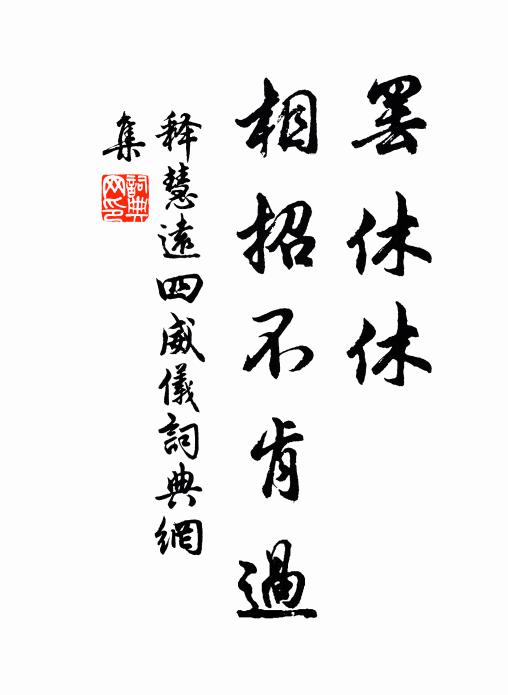 罢休休
相招不肯過
释慧遠四威儀詞典網
集
詞典
网印